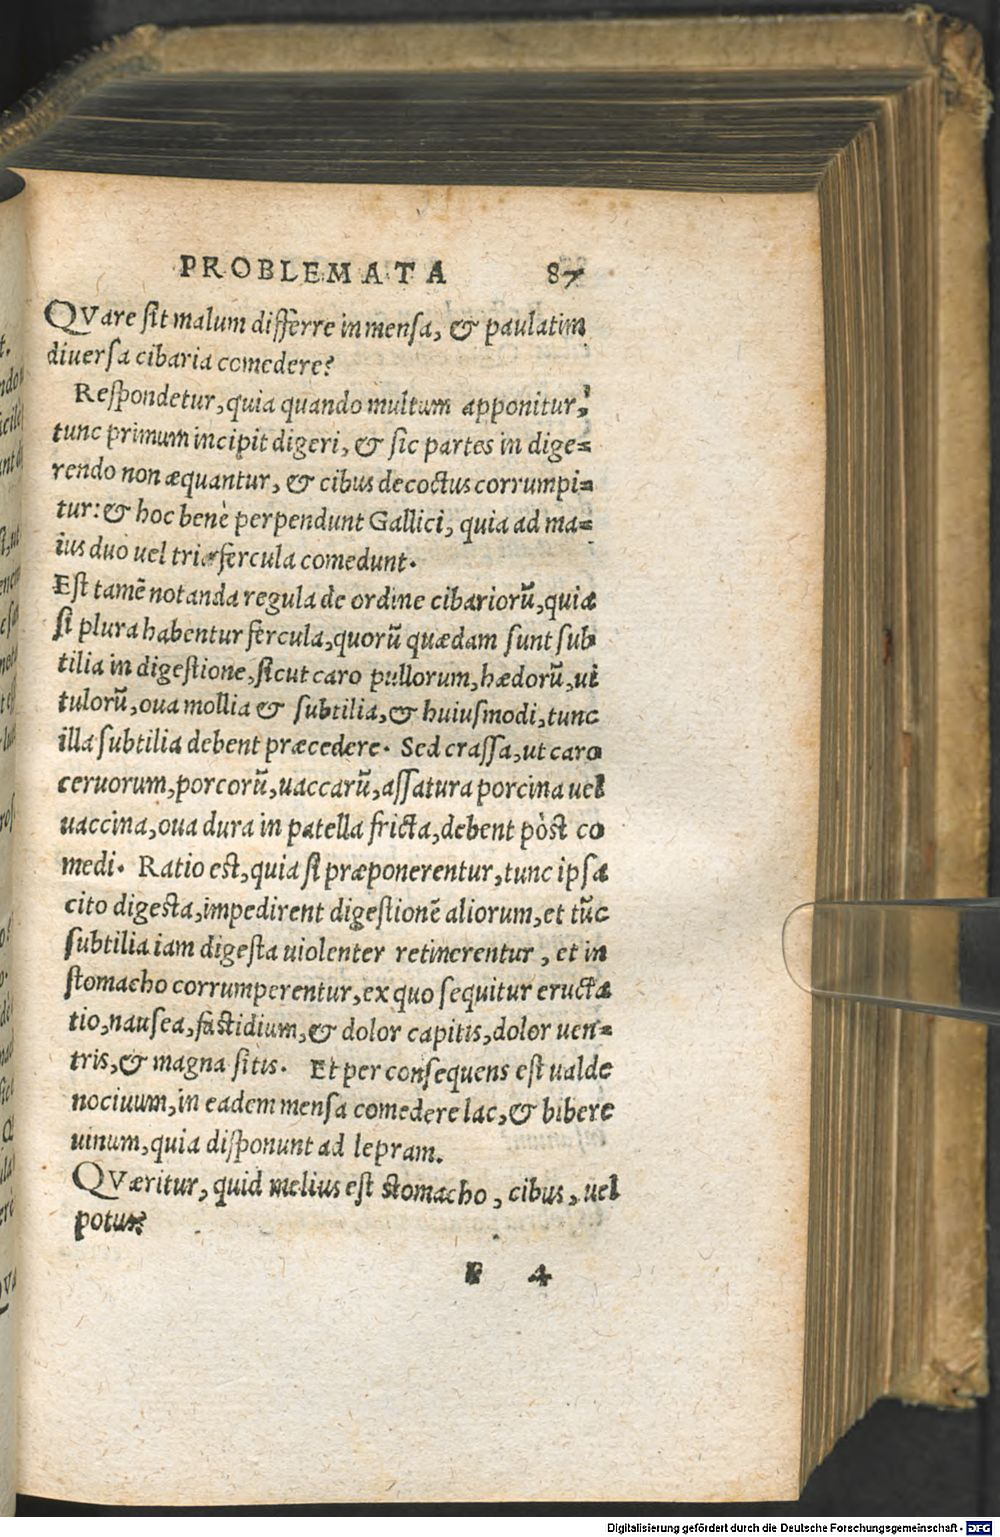 PROBLEMATA 87
QVare sit malum differre in mensa, & paulatim
diuersa cibaria comedere?
Respondetur, quia quando multum apponitur,
tunc primum incipit digeri, & sic partes in dige=
rendo non æquantur, & cibus decoctus corrumpi=
tur: & hoc benè perpendunt Gallici, quia ad ma=
ius duo uel tria fercula comedunt.
Est tamē notanda regula de ordine cibariorū, quia
si plura habentur fercula, quorū quædam sunt sub
tilia in digestione, sicut caro pullorum, hædorū, ui
tulorū, oua mollia & subtilia, & huiusmodi, tunc
illa subtilia debent præcedere. Sed crassa, ut caro
ceruorum, porcorū, uaccarū, assatura porcina uel
uaccina, oua dura in patella fricta, debent pòst co
medi. Ratio est, quia si præponerentur, tunc ipsa
cito digesta, impedirent digestionē aliorum, et tūc
subtilia iam digesta uiolenter retinerentur, et in
stomacho corrumperentur, ex quo sequitur eructa
tio, nausea, fastidium, & dolor capitis, dolor uen=
tris, & magna sitis. Et per consequens est ualde
nociuum, in eadem mensa comedere lac, & bibere
uinum, quia disponunt ad lepram.
QVæritur, quid melius est stomacho, cibus, uel
potus?
F 4
Digitalisierung gefördert durch die Deutsche Forschungsgemeinschaft - DFG